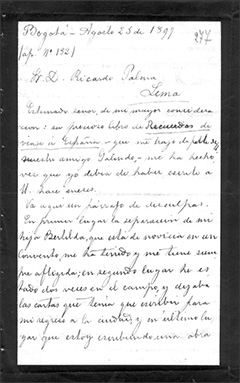 Bogotá - Agosto 25 de 1897
277
(ap. Nº 132)
Sr. D. Ricardo Palma
Lima
Estimado señor, de mi mayor considera
cion: su precioso libro de Recuerdos de
España - que me trajo de parte de
nuestro amigo Galindo, - me ha hecho
ver que yo debia de haber escrito á
U. hace meses.
Va aqui un párrafo de disculpas.
En primer lugar la separacion de mi
hija Bertilda, que está de novicia en un
convento, me ha tenido y me tiene siem
pre aflijida; en segundo lugar he es
tado dos veces en el campo, y dejaba
las cartas que tenia que escribir para
mi regreso a la ciudad; y en último lu
gar que estoy escribiendo una obra